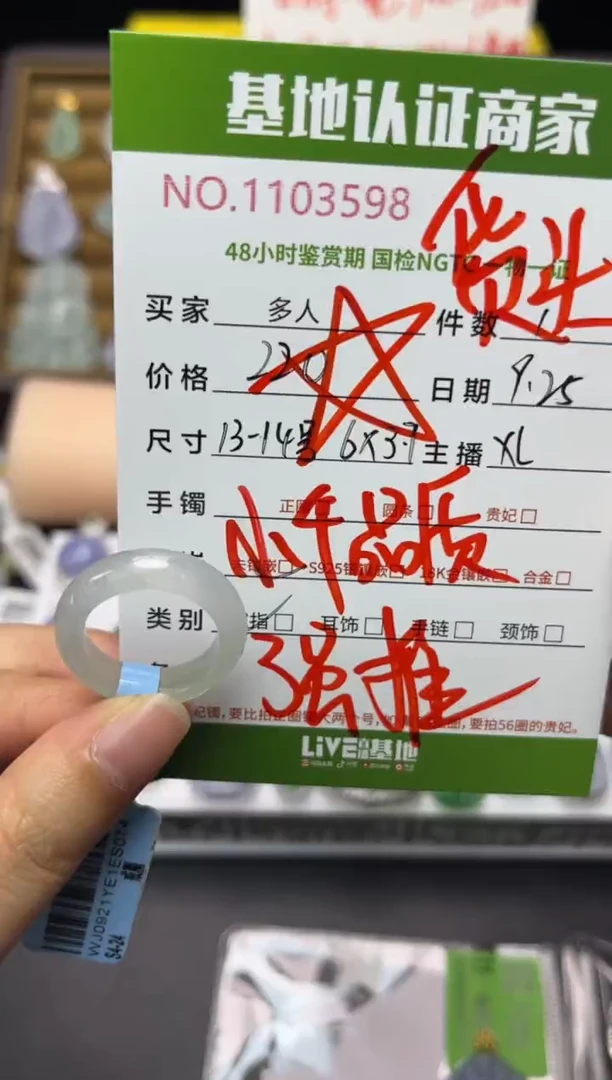 基地认证商家
NO.1103598
货头
48小时鉴赏期 国检NGTC一物一证
买家 多人 件数 1
价格 220 日期 9.25
尺寸 13-14号 6X3.7 主播 XL
手镯 正圈 圆条□ 贵妃□
小千品质
镶嵌□ S925银镶嵌□ 18K金镶嵌□ 合金□
类别 指□ 耳饰□ 手链□ 颈饰□
强推
妃镯,要比拍正圈 大两个号,如 圈,要拍56圈的贵妃。
LiVE直播基地
WJ0921YE1ES074
S4-24